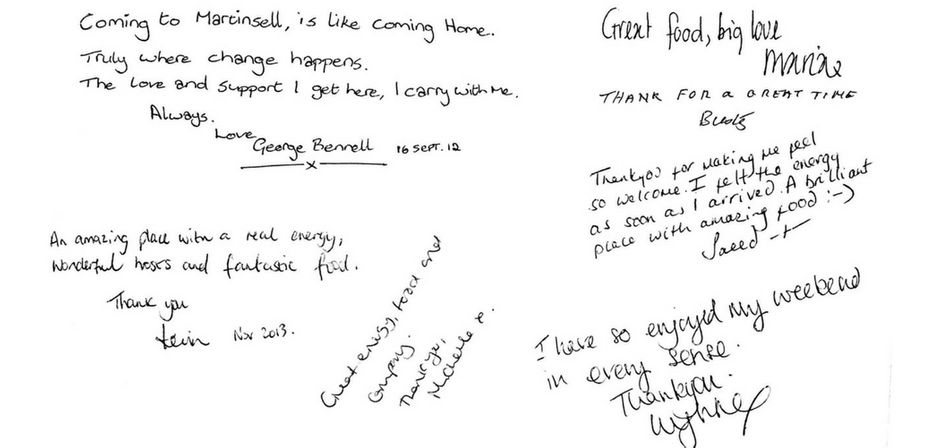 Coming to Martinsell, is like coming Home.
Truly where change happens.
The Love and support I get here, I carry with me.
Always.
Love
George Bennell 16 SEPT. 12
An amazing place with a real energy,
wonderful hoses and fantastic food.
Thank you
Kevin Nov 2013.
Great energy, food and
company.
Thank you,
Michelle x.
Great food, big love
Maria x
THANK FOR A GREAT TIME
Thankyou for making me feel
so welcome. I felt the energy
as soon as I arrived. A brilliant
place with amazing food :-)
Saeed
I have so enjoyed my weekend
in every sense.
Thankyou.